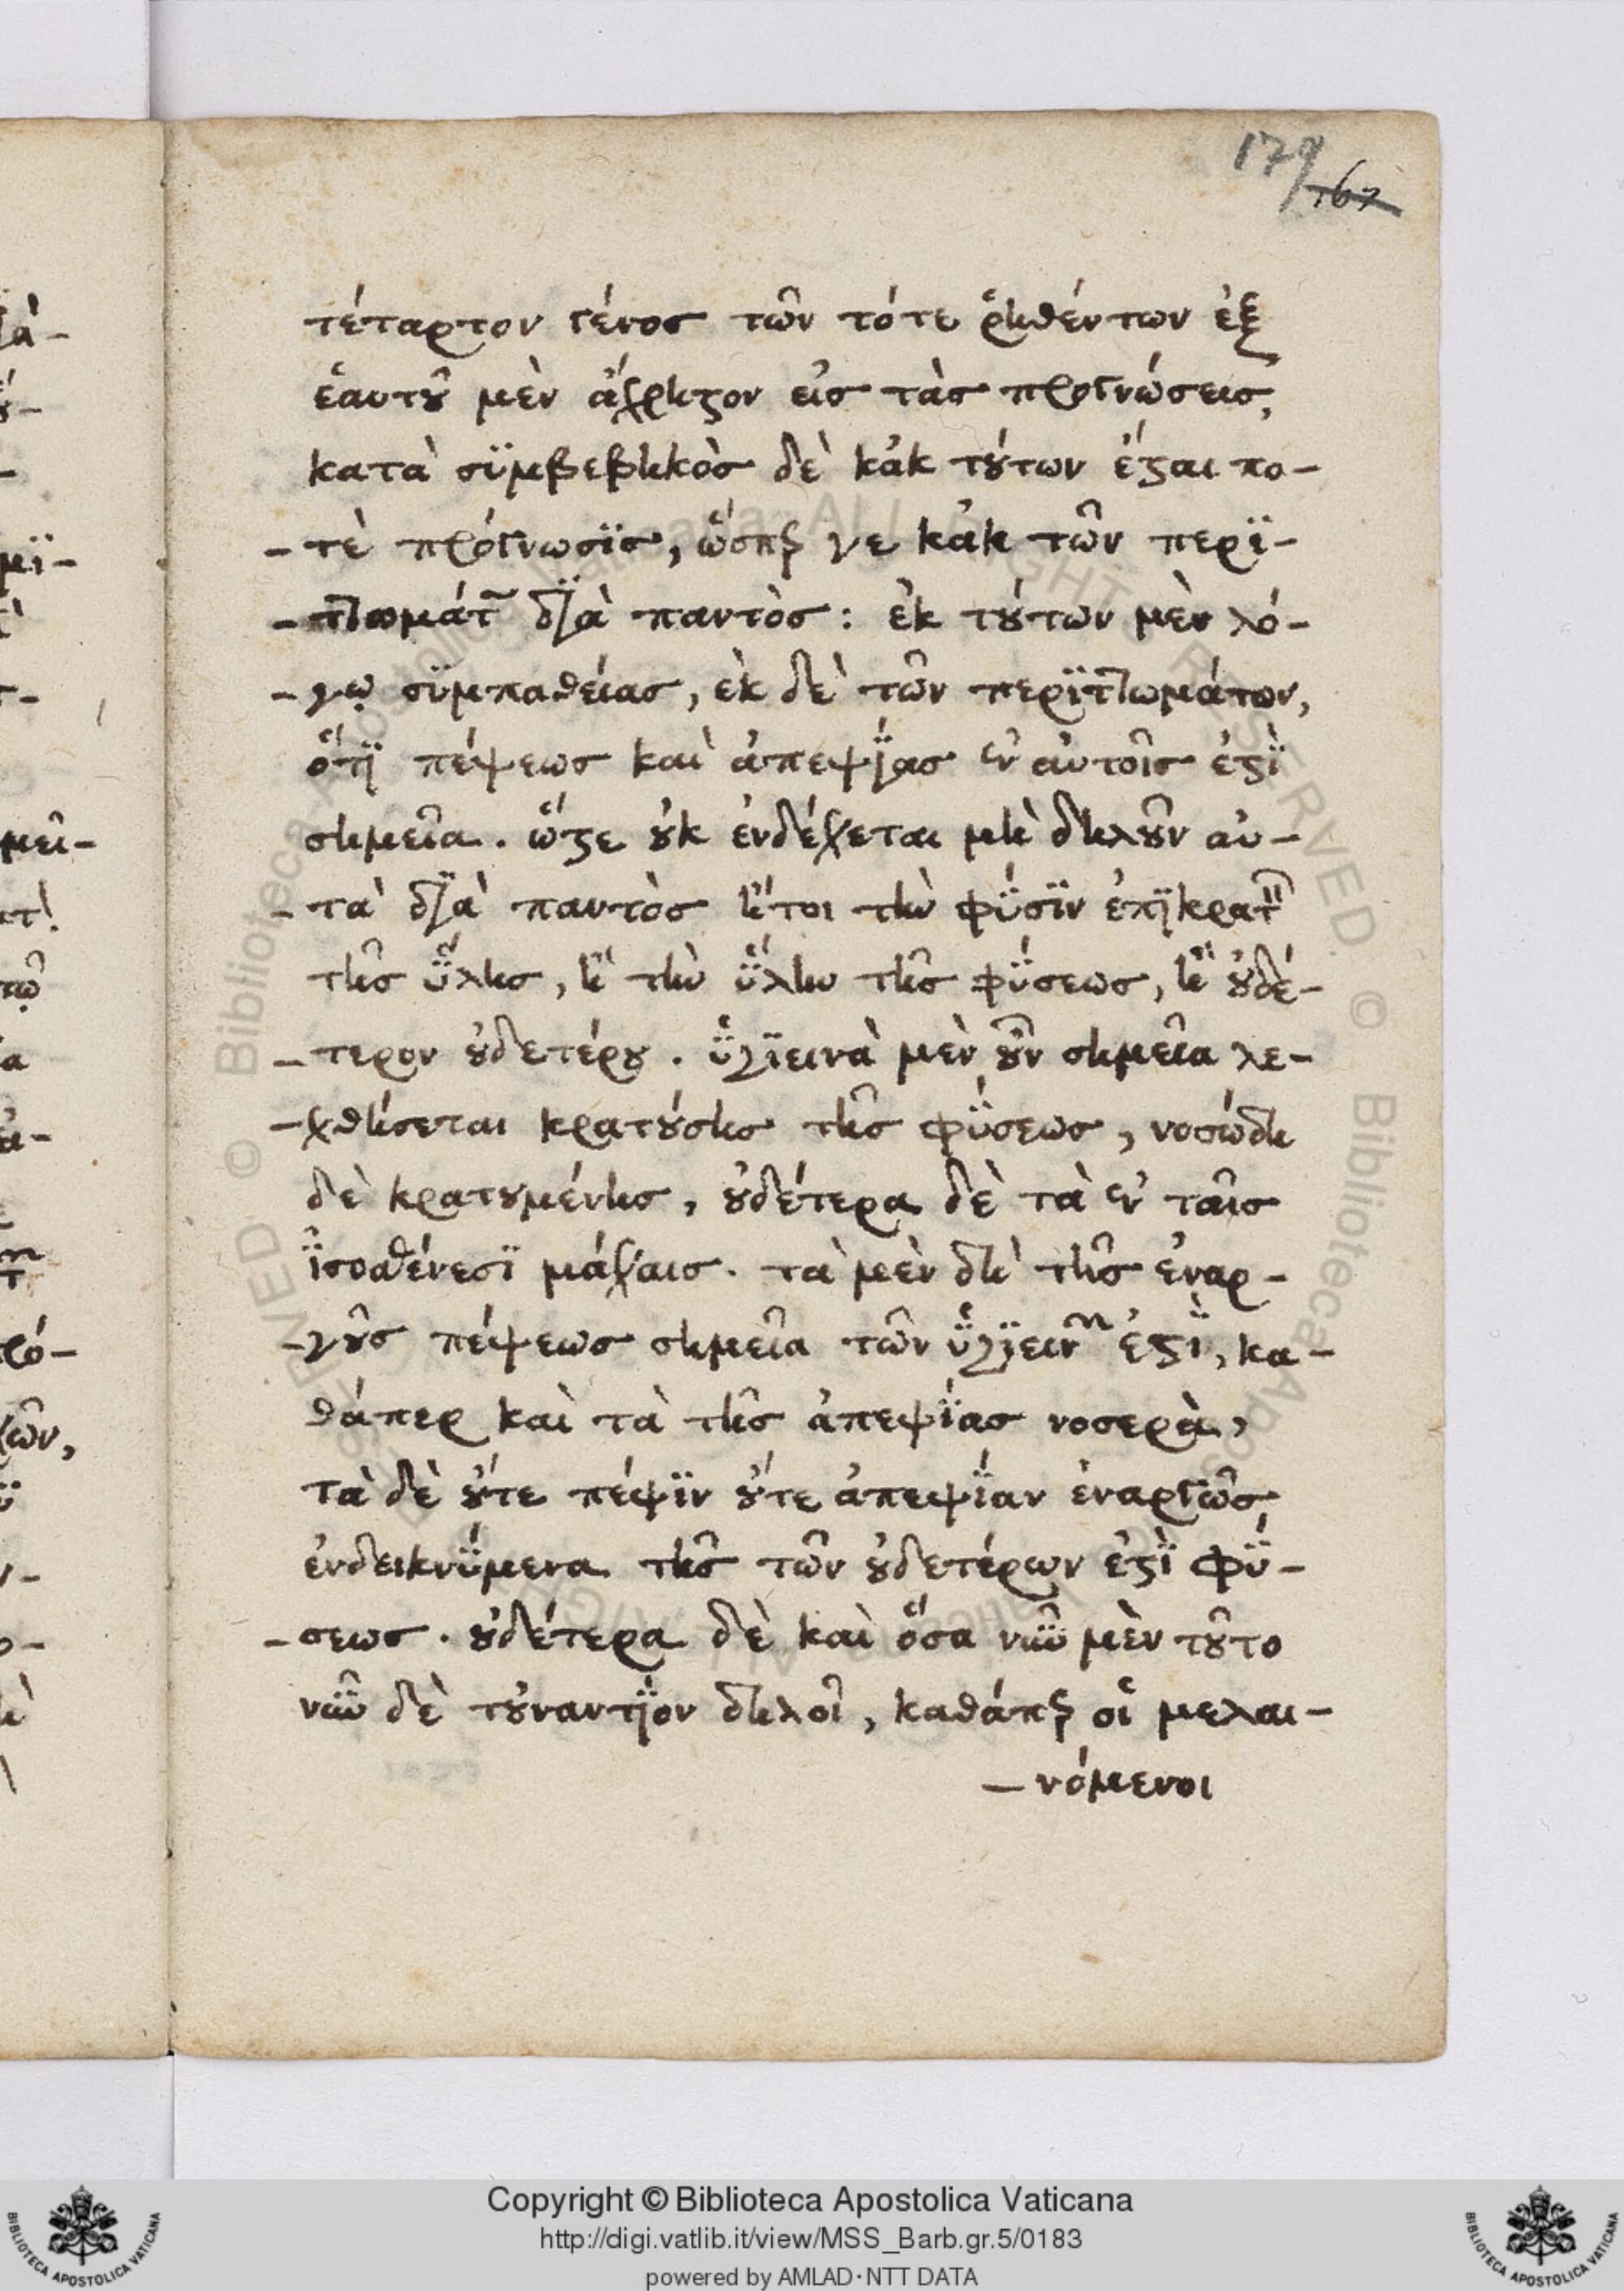 179
167
τέταρτον γένος τῶν τότε ῥηθέντων ἐξ
ἑαυτοῦ μὲν ἄχρηστον εἰς τὰς προγνώσεις,
κατὰ συμβεβηκὸς δὲ κἀκ τούτων ἔσται πο-
-τὲ πρόγνωσις, ὥσπερ γε κἀκ τῶν περι-
-ττωμάτων διὰ παντὸς: ἐκ τούτων μὲν λό-
-γῳ συμπαθείας, ἐκ δὲ τῶν περιττωμάτων,
ὅτι πέψεως καὶ ἀπεψίας ἐν αὐτοῖς ἐστὶ
σημεῖα. ὥστε οὐκ ἐνδέχεται μὴ δηλοῦν αὐ-
-τὰ διὰ παντὸς ἤτοι τὴν φύσιν ἐπικρατεῖν
τῆς ὕλης, ἢ τὴν ὕλην τῆς φύσεως, ἢ οὐδέ-
-τερον οὐδετέρου. ὑγιεινὰ μὲν οὖν σημεῖα λε-
-χθήσεται κρατούσης τῆς φύσεως, νοσώδη
δὲ κρατουμένης, οὐδέτερα δὲ τὰ ἐν ταῖς
ἰσοσθένεσι μάχαις. τὰ μὲν δὴ τῆς ἐναρ-
-γοῦς πέψεως σημεῖα τῶν ὑγιεινῶν ἐστὶ, κα-
θάπερ καὶ τὰ τῆς ἀπεψίας νοσερὰ,
τὰ δὲ οὔτε πέψιν οὔτε ἀπεψίαν ἐναργῶς
ἐνδεικνύμενα τῆς τῶν οὐδετέρων ἐστὶ φύ-
-σεως. οὐδέτερα δὲ καὶ ὅσα νῦν μὲν τοῦτο
νῦν δὲ τοὐναντίον δηλοῖ, καθάπερ οἱ μελαι-
-νόμενοι
Copyright © Biblioteca Apostolica Vaticana
http://digi.vatlib.it/view/MSS_Barb.gr.5/0183
powered by AMLAD·NTT DATA